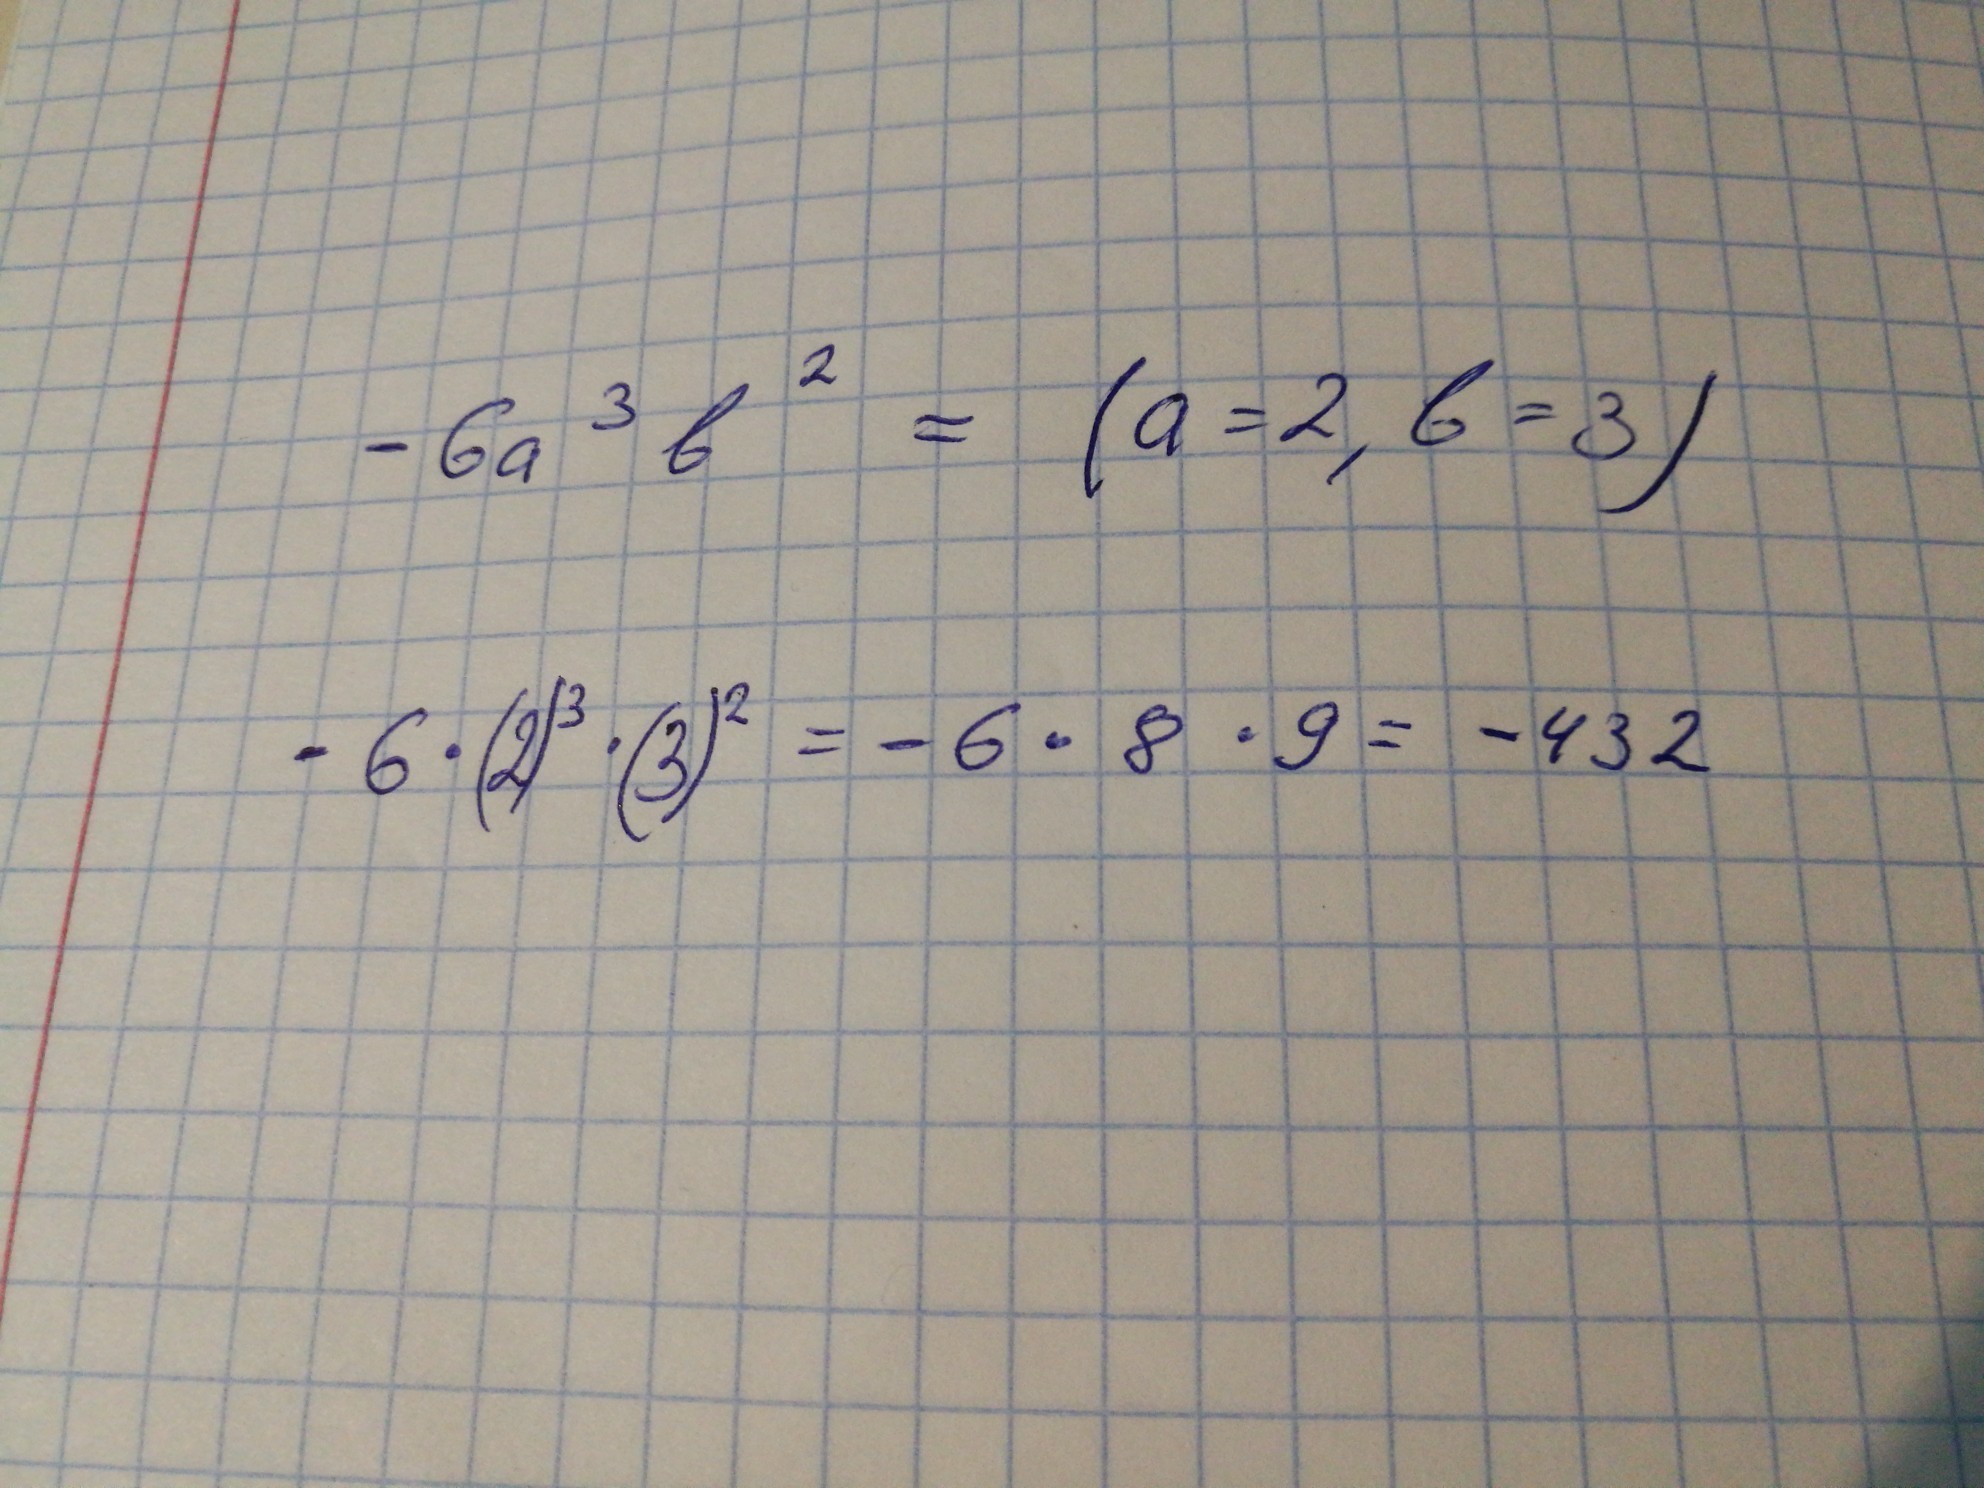 -6a³b² = (a=2, b=3)
-6·(2)³·(3)² = -6·8·9 = -432